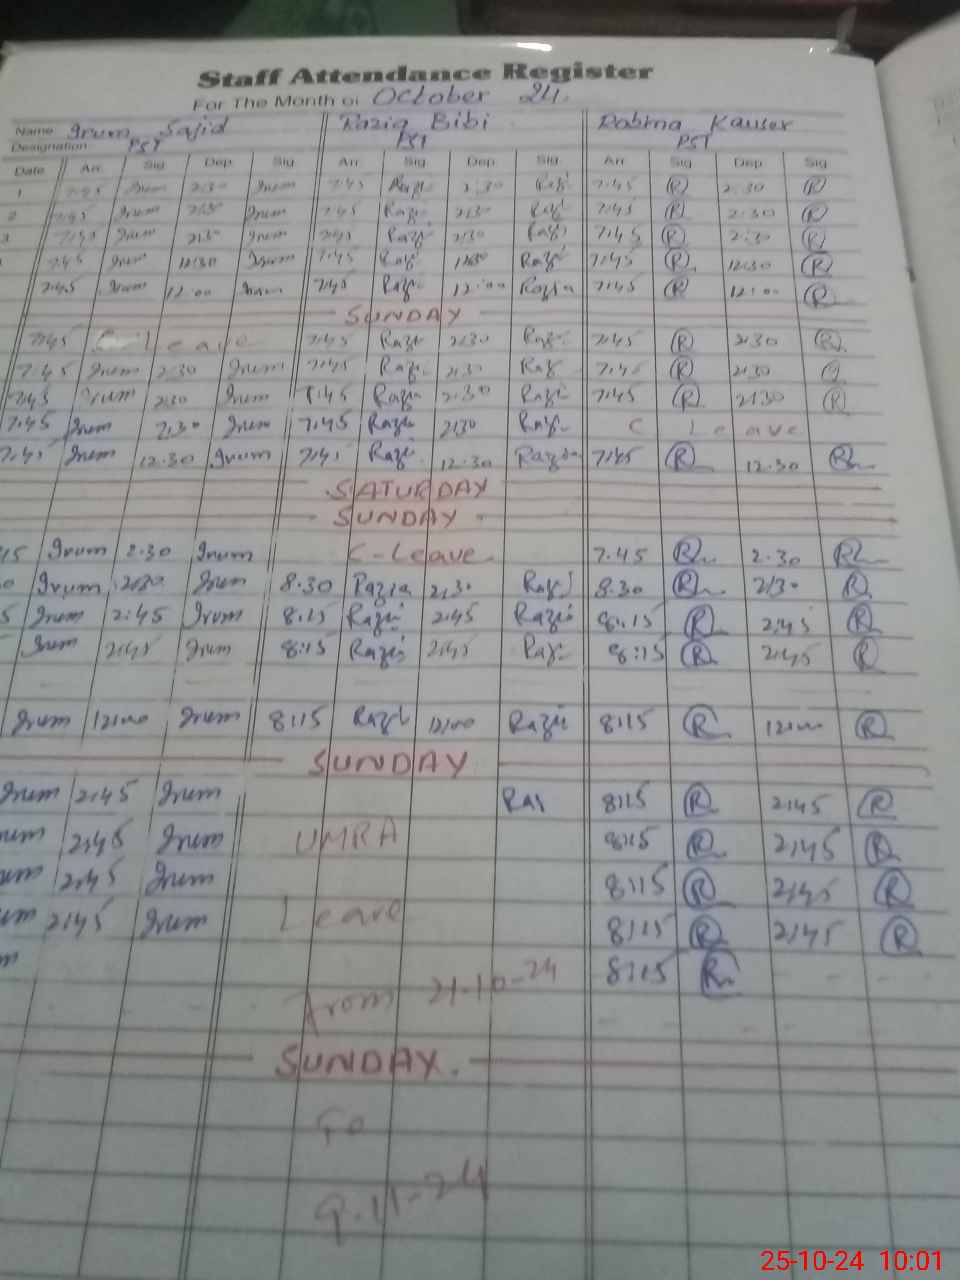 Staff Attendance Register
For The Month of October 24.
Name Irum Sajid Razia Bibi Robina Kauser
Designation PST PST PST
Date Arr Sig Dep. Sig Arr Sig. Dep Sig. Arr Sig Dep Sig
1 7:45 Irum 2:30 Irum 7:45 Razi 2:30 Razi 7:45 R 2:30 R
2 7:45 Irum 2:30 Irum 7:45 Razi 2:30 Razi 7:45 R 2:30 R
3 7:45 Irum 2:30 Irum 7:45 Razi 2:30 Razi 7:45 R 2:30 R
7:45 Irum 12:30 Irum 7:45 Razi 12:30 Razi 7:45 R 12:30 R
7:45 Irum 12:00 Irum 7:45 Razi 12:00 Razia 7:45 R 12:00 R
SUNDAY
7:45 Leave 7:45 Razi 2:30 Razi 7:45 R 2:30 R
7:45 Irum 2:30 Irum 7:45 Razi 2:30 Razi 7:45 R 2:30
7:45 Irum 2:30 Irum 7:45 Razi 2:30 Razi 7:45 R 2:30 R
7:45 Irum 2:30 Irum 7:45 Razi 2:30 Razi C Leave
7:45 Irum 12:30 Irum 7:45 Razi 12:30 Razia 7:45 R 12:30 R
SATURDAY
SUNDAY
45 Irum 2:30 Irum C-Leave 7:45 R 2:30 R
0 Irum 2:30 Irum 8:30 Razia 2:30 Razi 8:30 R 2:30 R
5 Irum 2:45 Irum 8:15 Razi 2:45 Razi 8:15 R 2:45 R
Irum 2:45 Irum 8:15 Razi 2:45 Razi 8:15 R 2:45 R
Irum 12:00 Irum 8:15 Razi 12:00 Razi 8:15 R 12:00 R
SUNDAY
Irum 2:45 Irum Raz 8:15 R 2:45 R
um 2:45 Irum UMRA 8:15 R 2:45 R
um 2:45 Irum 8:15 R 2:45 R
um 2:45 Irum Leave 8:15 R 2:45 R
m 8:15 R
from 21-10-24
SUNDAY.
To
9-11-24
25-10-24 10:01